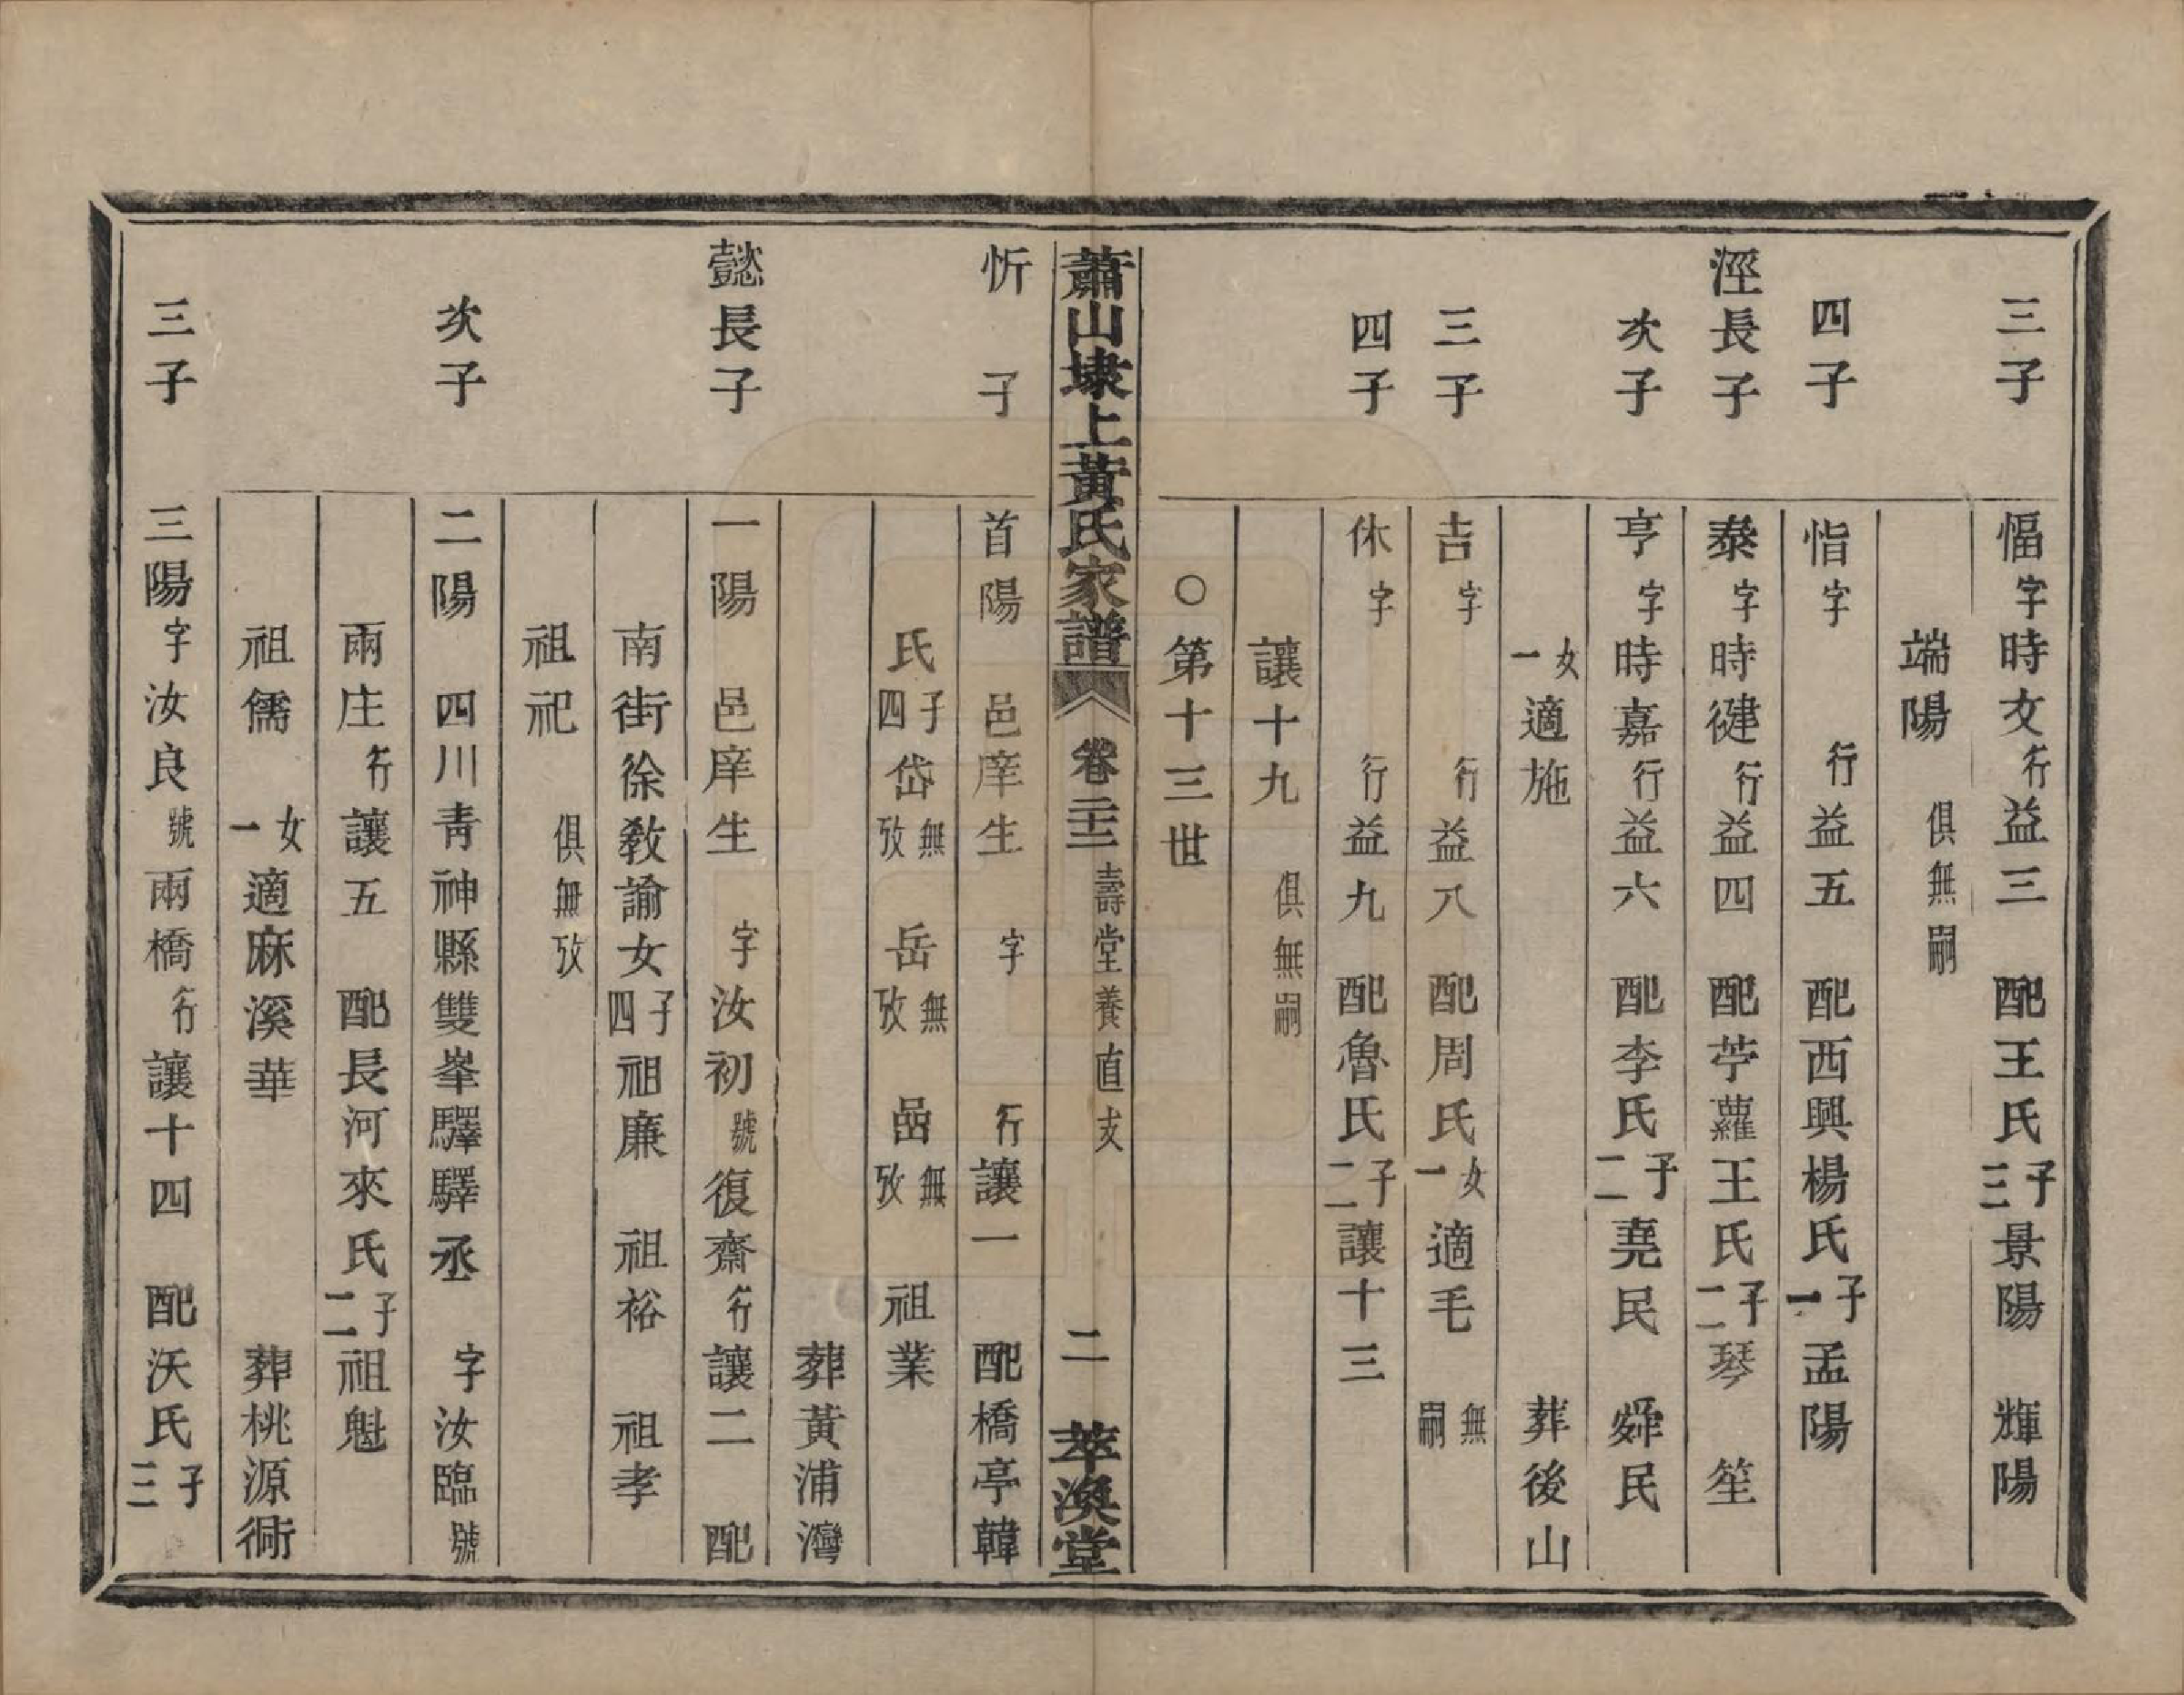 三子 愊字時文行益三 配王氏子三景陽 輝陽
端陽 俱無嗣
四子 恉字 行益五 配西興楊氏子一孟陽
涇長子 泰字時健行益四 配苧蘿王氏子二琴 笙
次子 亨字時嘉行益六 配李氏子二堯民 舜民
女一適施 葬後山
三子 吉字 行益八 配周氏女一適毛 無嗣
四子 休字 行益九 配魯氏子二讓十三
讓十九 俱無嗣
○第十三世
蕭山埭上黃氏家譜 卷二十二 壽堂養直支 二 萃渙堂
忻子 首陽 邑庠生 字 行讓一 配橋亭韓
氏子四岱無攷 岳無攷 嵒無攷 祖業
葬黃浦灣
懿長子 一陽 邑庠生 字汝初號復齋行讓二 配
南街徐敎諭女子四祖廉 祖裕 祖孝
祖祀 俱無攷
次子 二陽 四川靑神縣雙峯驛驛丞 字汝臨號
兩庄行讓五 配長河來氏子二祖魁
祖儒 女一適麻溪華 葬桃源衕
三子 三陽字汝良號兩橋行讓十四 配沃氏子三